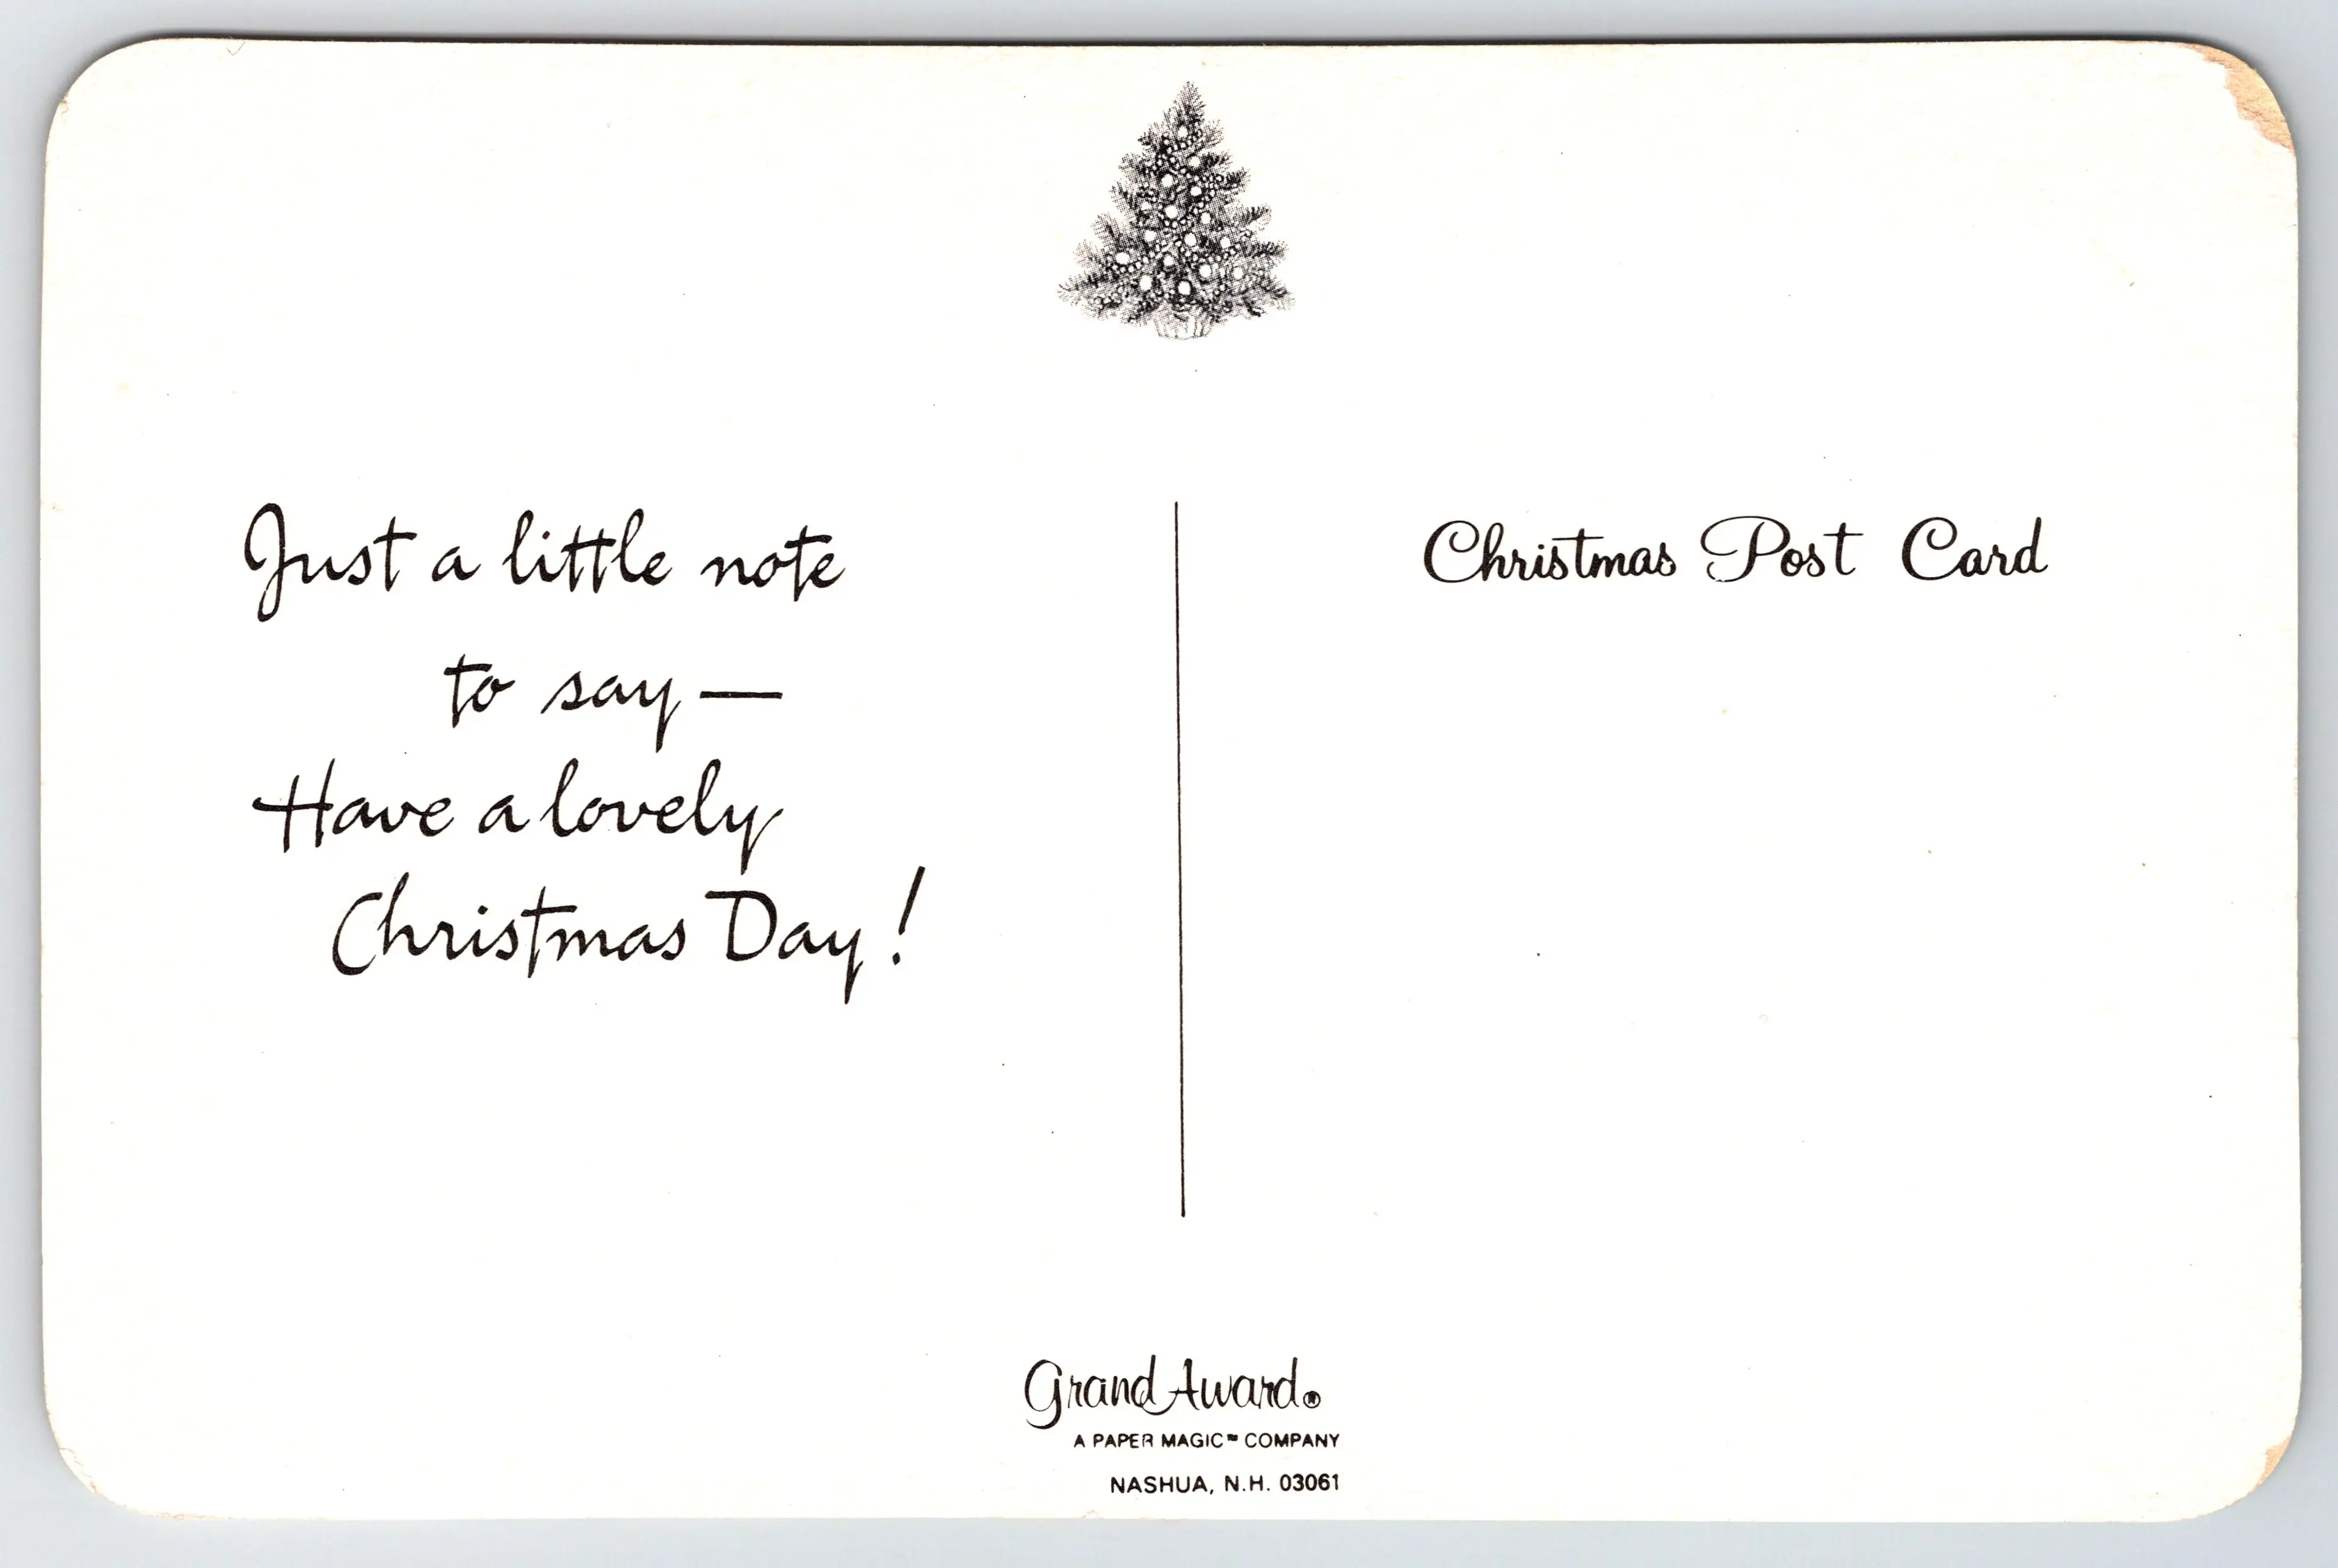 Just a little note
to say —
Have a lovely
Christmas Day!
Christmas Post Card
Grand Award®
A PAPER MAGIC™ COMPANY
NASHUA, N.H. 03061